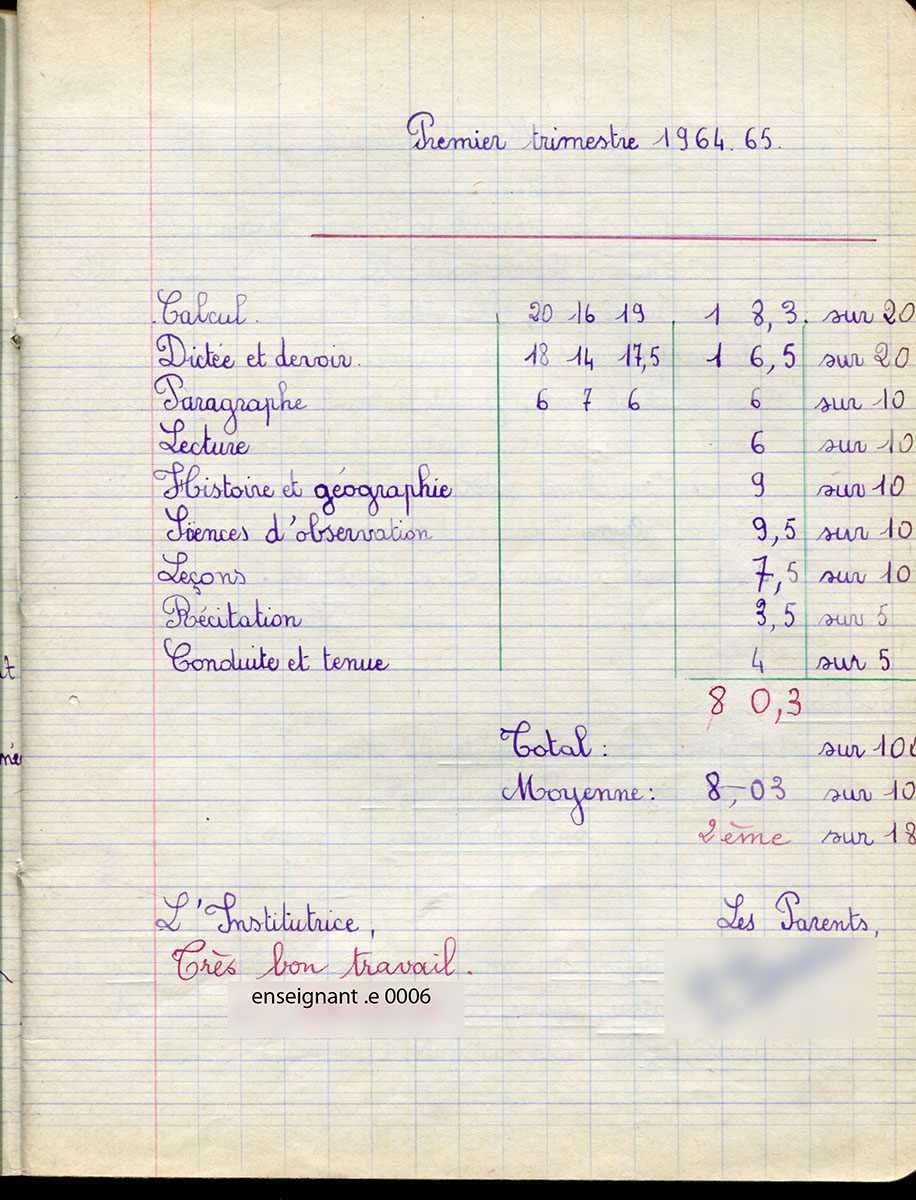 Premier trimestre 1964.65.
Calcul. 20 16 19 18,3. sur 20
Dictée et devoir. 18 14 17,5 16,5 sur 20
Paragraphe 6 7 6 6 sur 10
Lecture 6 sur 10
Histoire et géographie 9 sur 10
Sciences d'observation 9,5 sur 10
Leçons 7,5 sur 10
Récitation 3,5 sur 5
Conduite et tenue 4 sur 5
80,3
Total : sur 100
Moyenne : 8,03 sur 10
2ème sur 18
L'Institutrice, Les Parents,
Très bon travail.
enseignant .e 0006